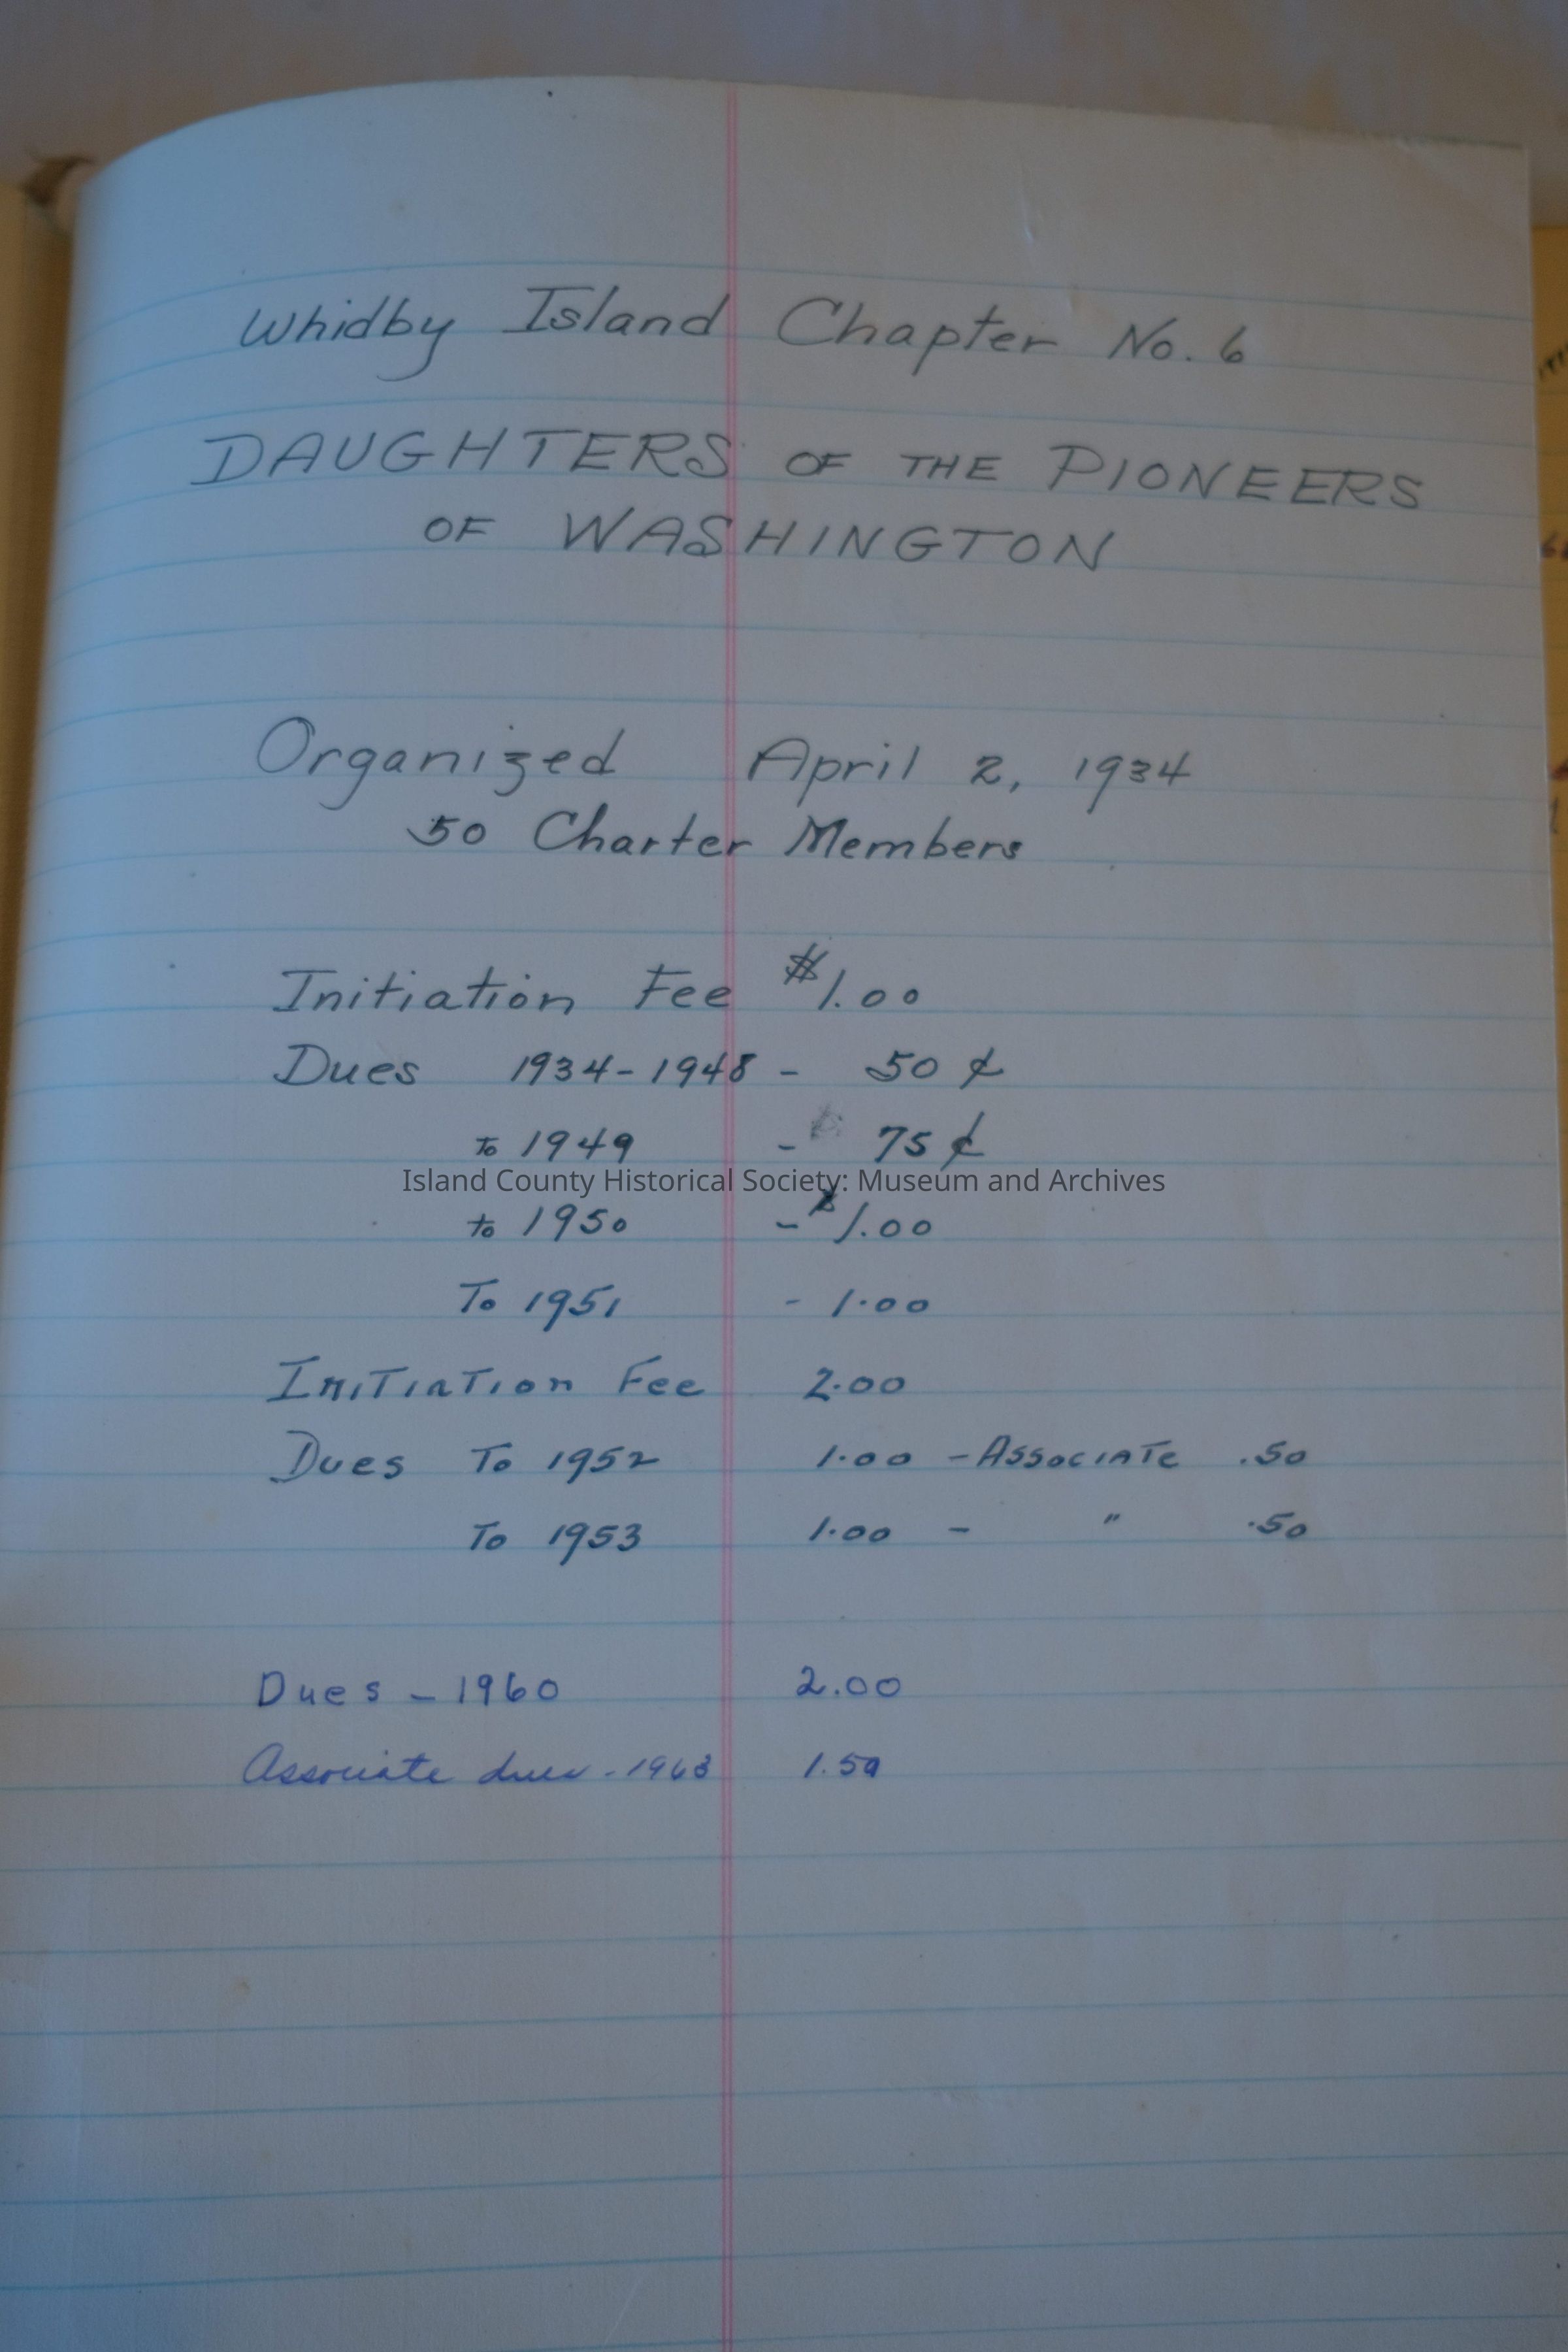 Whidby Island Chapter No. 6
DAUGHTERS OF THE PIONEERS
OF WASHINGTON
Organized April 2, 1934
50 Charter Members
Initiation Fee $1.00
Dues 1934-1948 - 50 ¢
to 1949 - 75 ¢
Island County Historical Society: Museum and Archives
to 1950 - $1.00
To 1951 - 1.00
Initiation Fee 2.00
Dues To 1952 1.00 - Associate .50
To 1953 1.00 - " .50
Dues - 1960 2.00
Associate dues - 1963 1.50